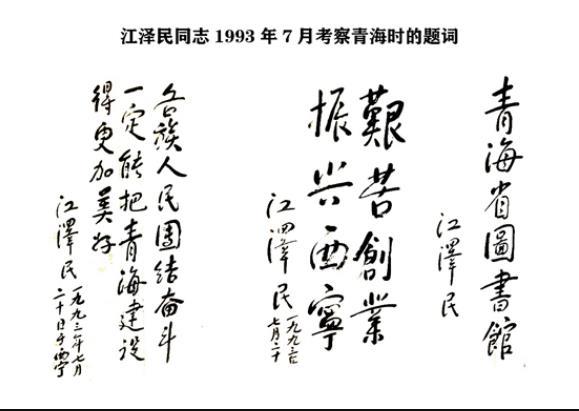 江泽民同志 1993 年 7 月考察青海时的题词
青海省圖書館
江澤民
艱苦創業
振兴西寧
江澤民
一九九三年
七月二十
各族人民團结奋斗
一定能把青海建设
得更加美好
江澤民
一九九三年七月
二十日于西宁